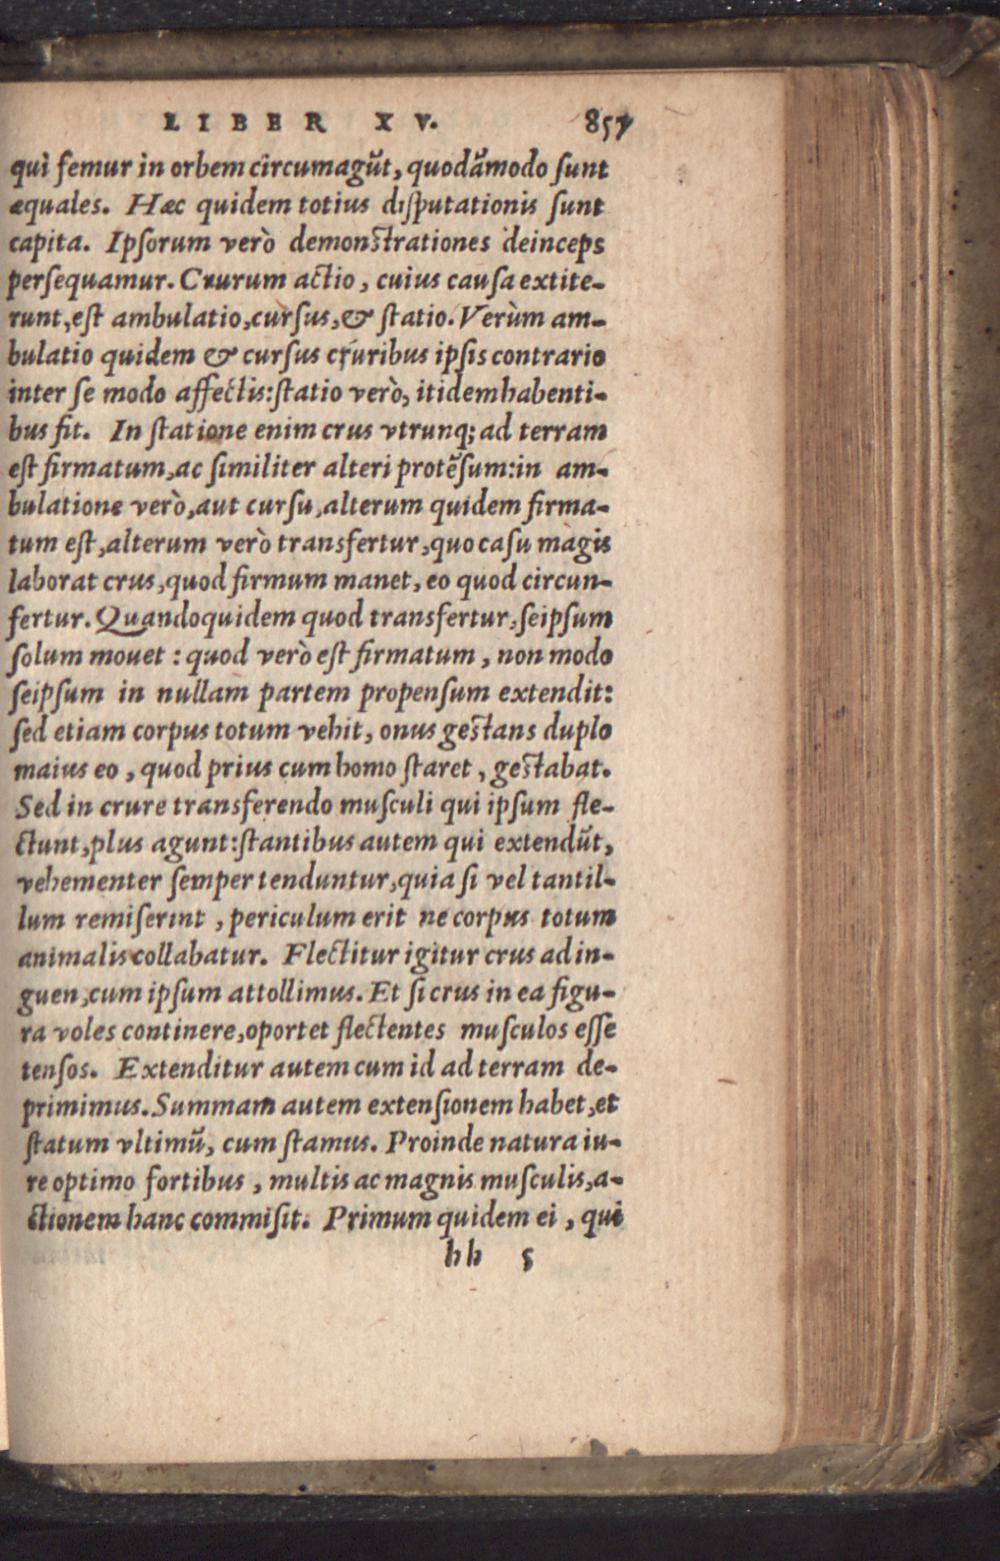 LIBER XV. 857
qui femur in orbem circumagūt, quodāmodo ſunt
æquales. Hæc quidem totius diſputationis ſunt
capita. Ipſorum verò demonſtrationes deinceps
perſequamur. Crurum actio, cuius cauſa extite-
runt, eſt ambulatio, curſus, & ſtatio. Verùm am-
bulatio quidem & curſus cruribus ipſis contrario
inter ſe modo affectis: ſtatio verò, itidem habenti-
bus fit. In ſtatione enim crus vtrunq; ad terram
eſt firmatum, ac ſimiliter alteri protēſum: in am-
bulatione verò, aut curſu, alterum quidem firma-
tum eſt, alterum verò transfertur, quo caſu magis
laborat crus, quod firmum manet, eo quod circun-
fertur. Quandoquidem quod transfertur, ſeipſum
ſolum mouet : quod verò eſt firmatum, non modo
ſeipſum in nullam partem propenſum extendit:
ſed etiam corpus totum vehit, onus geſtans duplo
maius eo, quod prius cum homo ſtaret, geſtabat.
Sed in crure transferendo muſculi qui ipſum fle-
ctunt, plus agunt: ſtantibus autem qui extendūt,
vehementer ſemper tenduntur, quia ſi vel tantil-
lum remiſerint, periculum erit ne corpus totum
animalis collabatur. Flectitur igitur crus ad in-
guen, cum ipſum attollimus. Et ſi crus in ea figu-
ra voles continere, oportet flectentes muſculos eſſe
tenſos. Extenditur autem cum id ad terram de-
primimus. Summam autem extenſionem habet, et
ſtatum vltimū, cum ſtamus. Proinde natura iu-
re optimo fortibus, multis ac magnis muſculis, a-
ctionem hanc commiſit. Primum quidem ei, qui
hh 5